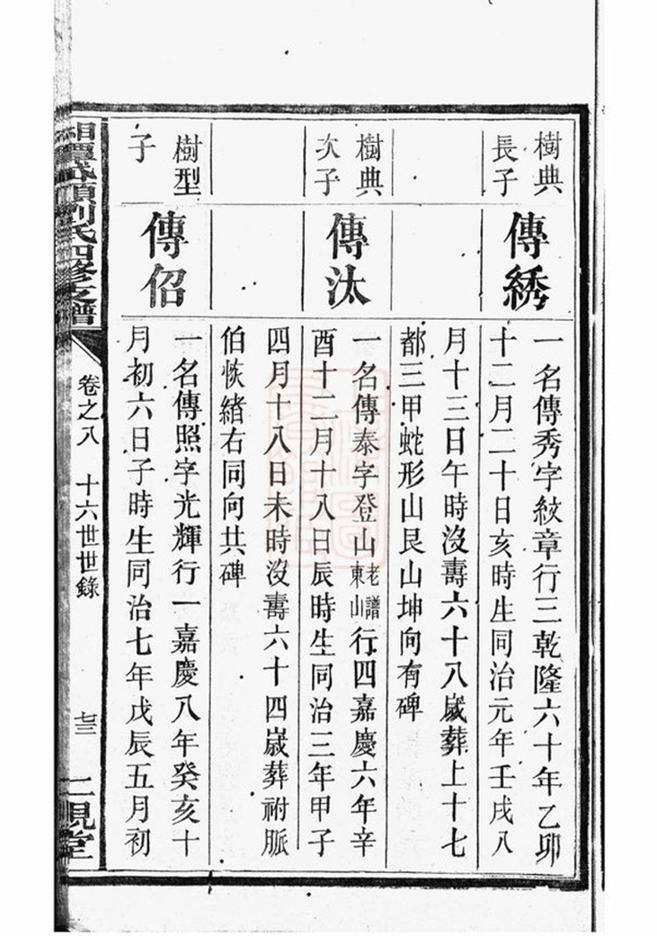 樹典
長子
傳綉
一名傳秀字紋章行三乾隆六十年乙卯
十二月二十日亥時生同治元年壬戌八
月十三日午時沒壽六十八歲葬上十七
都三甲蛇形山艮山坤向有碑
樹典
次子
傳汰
一名傳泰字登山老譜東山行四嘉慶六年辛
酉十二月十八日辰時生同治三年甲子
四月十八日未時沒壽六十四歲葬祔脈
伯恢緒右同向共碑
樹型
子
傳佋
一名傳照字光輝行一嘉慶八年癸亥十
月初六日子時生同治七年戊辰五月初
劉氏四修支譜
卷之八 十六世世錄
七三
堂